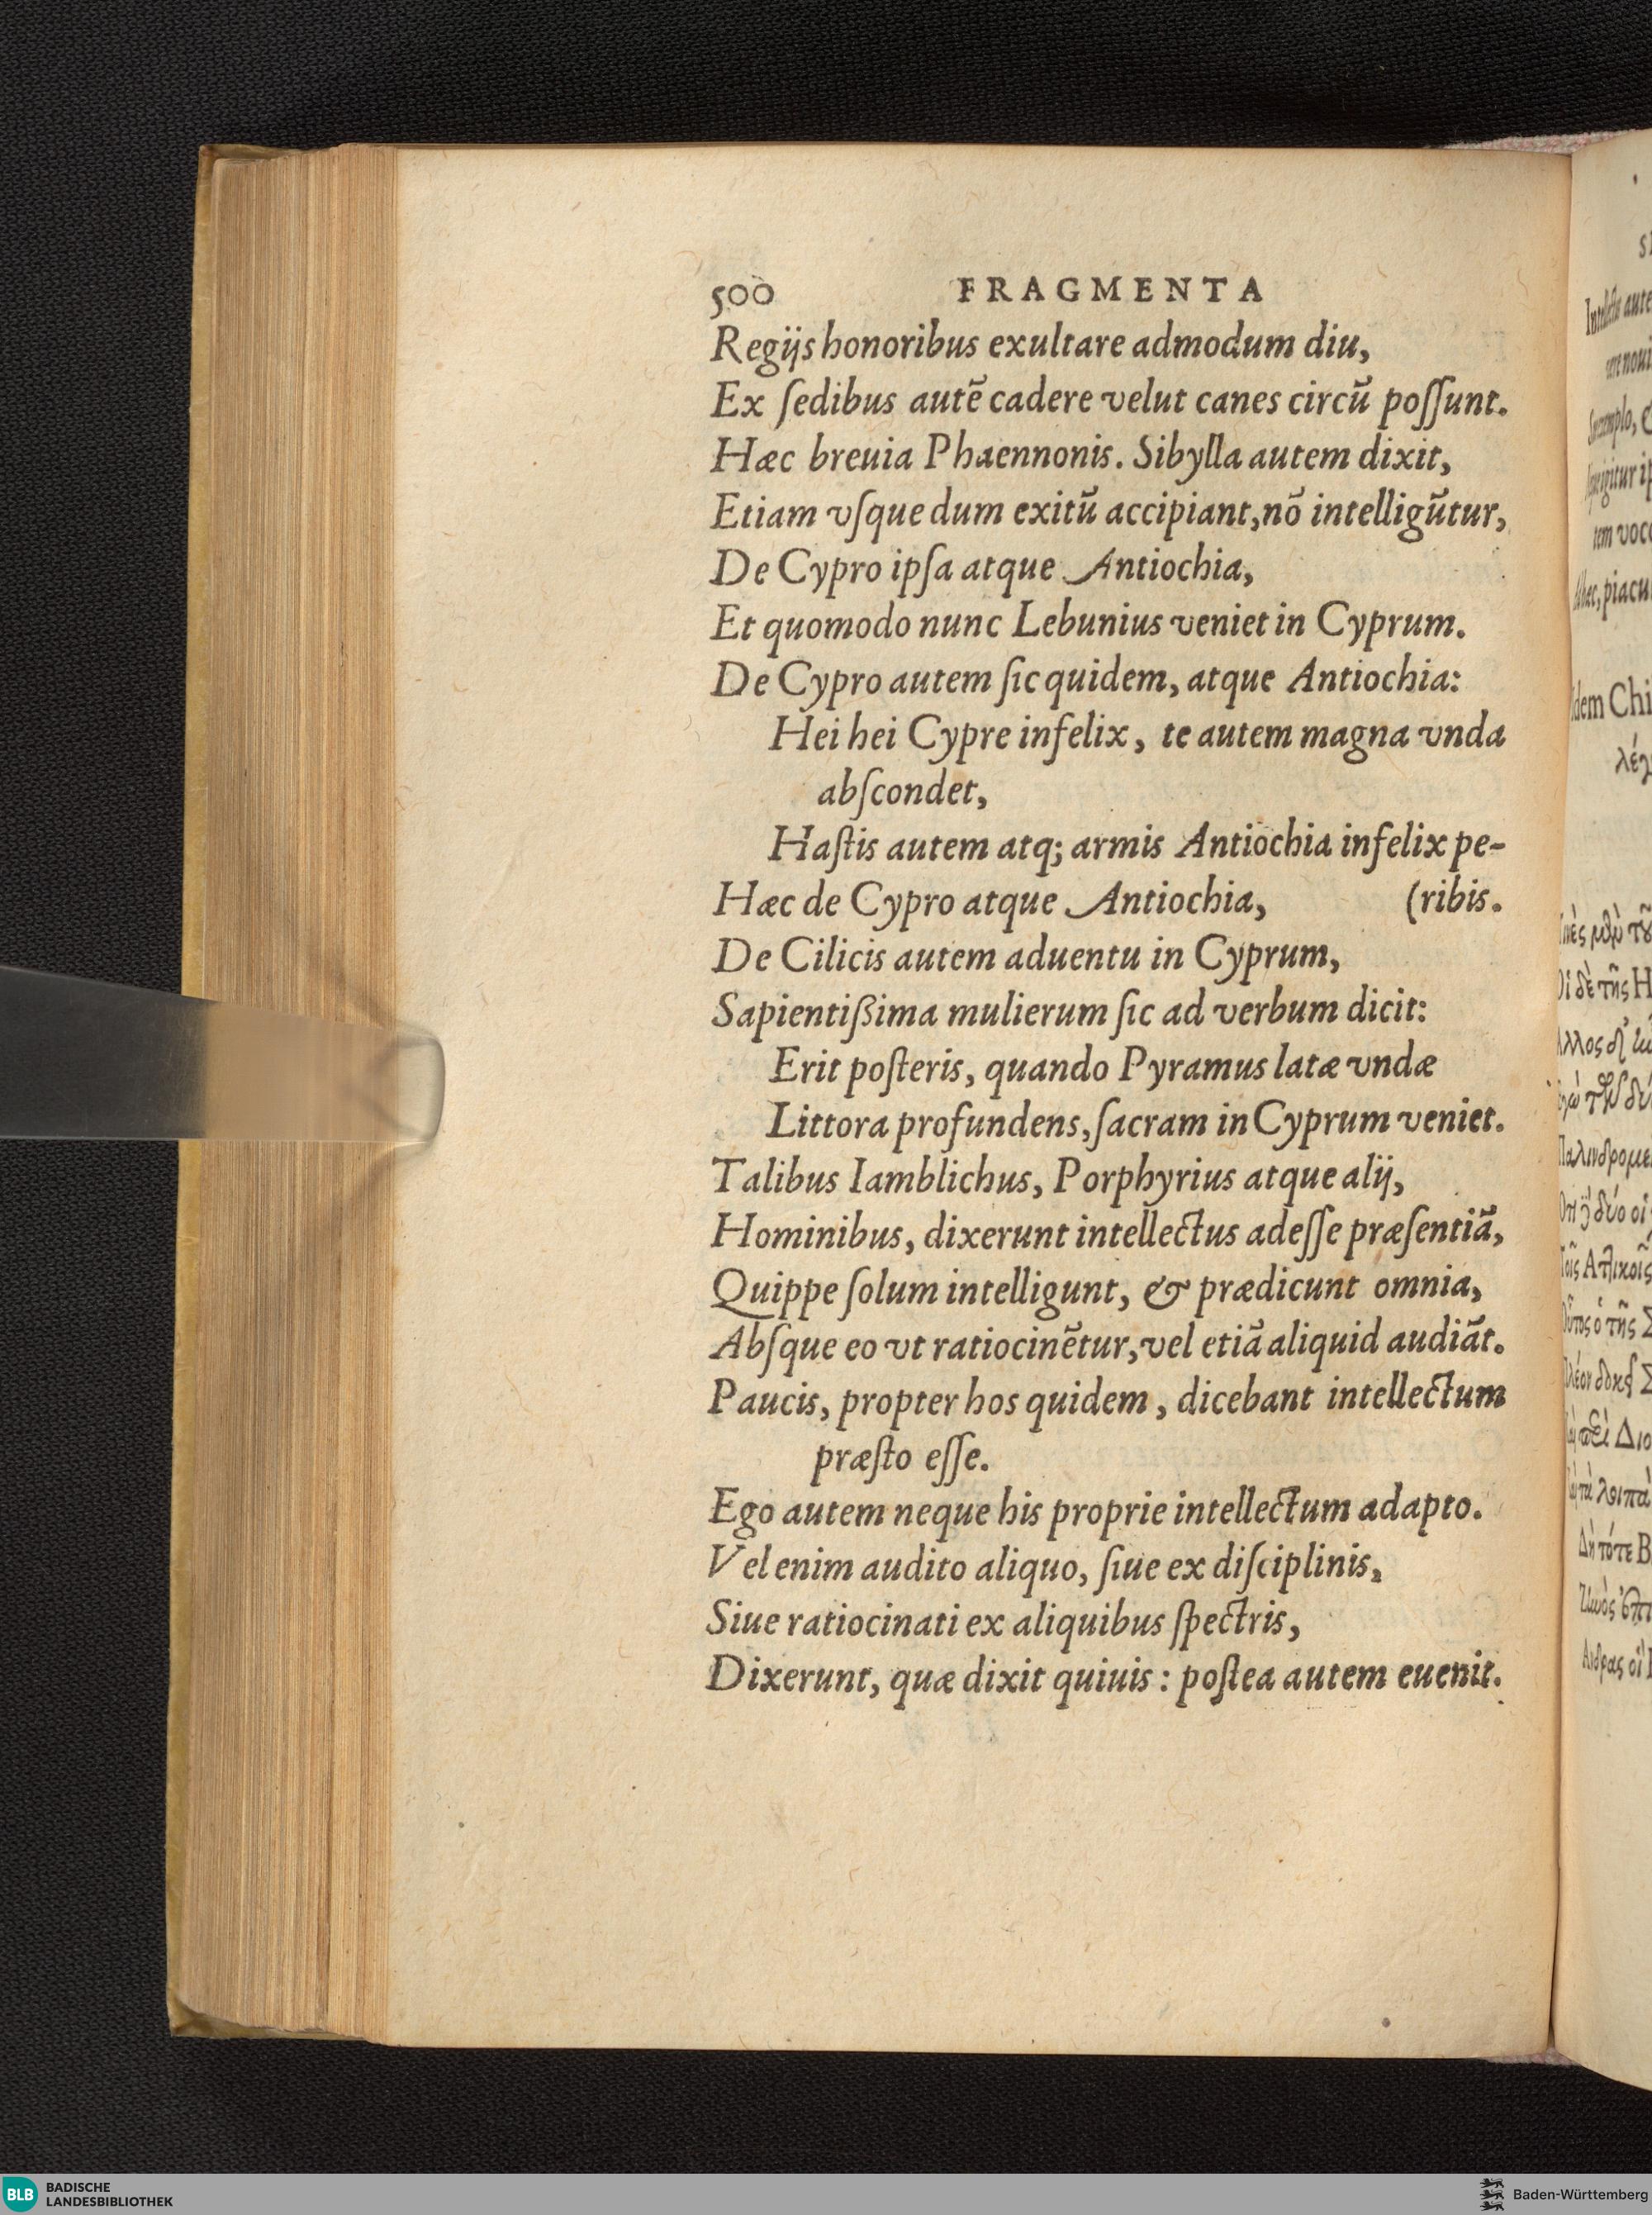 500 FRAGMENTA
Regijs honoribus exultare admodum diu,
Ex ſedibus autẽ cadere velut canes circũ poſſunt.
Hæc breuia Phaennonis. Sibylla autem dixit,
Etiam vſque dum exitũ accipiant, nõ intelligũtur,
De Cypro ipſa atque Antiochia,
Et quomodo nunc Lebunius veniet in Cyprum.
De Cypro autem ſic quidem, atque Antiochia:
Hei hei Cypre infelix, te autem magna vnda
abſcondet,
Haſtis autem atq; armis Antiochia infelix pe-
Hæc de Cypro atque Antiochia, (ribis.
De Cilicis autem aduentu in Cyprum,
Sapientißima mulierum ſic ad verbum dicit:
Erit poſteris, quando Pyramus latæ vndæ
Littora profundens, ſacram in Cyprum veniet.
Talibus Iamblichus, Porphyrius atque alij,
Hominibus, dixerunt intellectus adeſſe præſentiã,
Quippe ſolum intelligunt, & prædicunt omnia,
Abſque eo vt ratiocinẽtur, vel etiã aliquid audiãt.
Paucis, propter hos quidem, dicebant intellectum
præſto eſſe.
Ego autem neque his proprie intellectum adapto.
Vel enim audito aliquo, ſiue ex diſciplinis,
Siue ratiocinati ex aliquibus ſpectris,
Dixerunt, quæ dixit quiuis: poſtea autem euenit.
BLB BADISCHE
LANDESBIBLIOTHEK
Baden-Württemberg